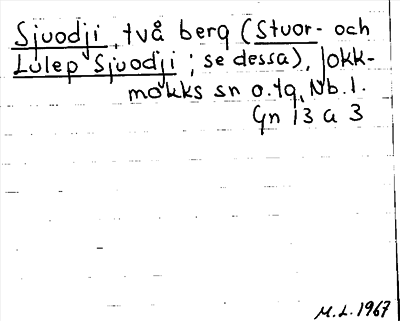 Sjuodji, två berg (Stuor- och
Lulep Sjuodji; se dessa), Jokk-
mokks sn o. tg, Nb. l.
Gn 13 a 3
M.L. 1967